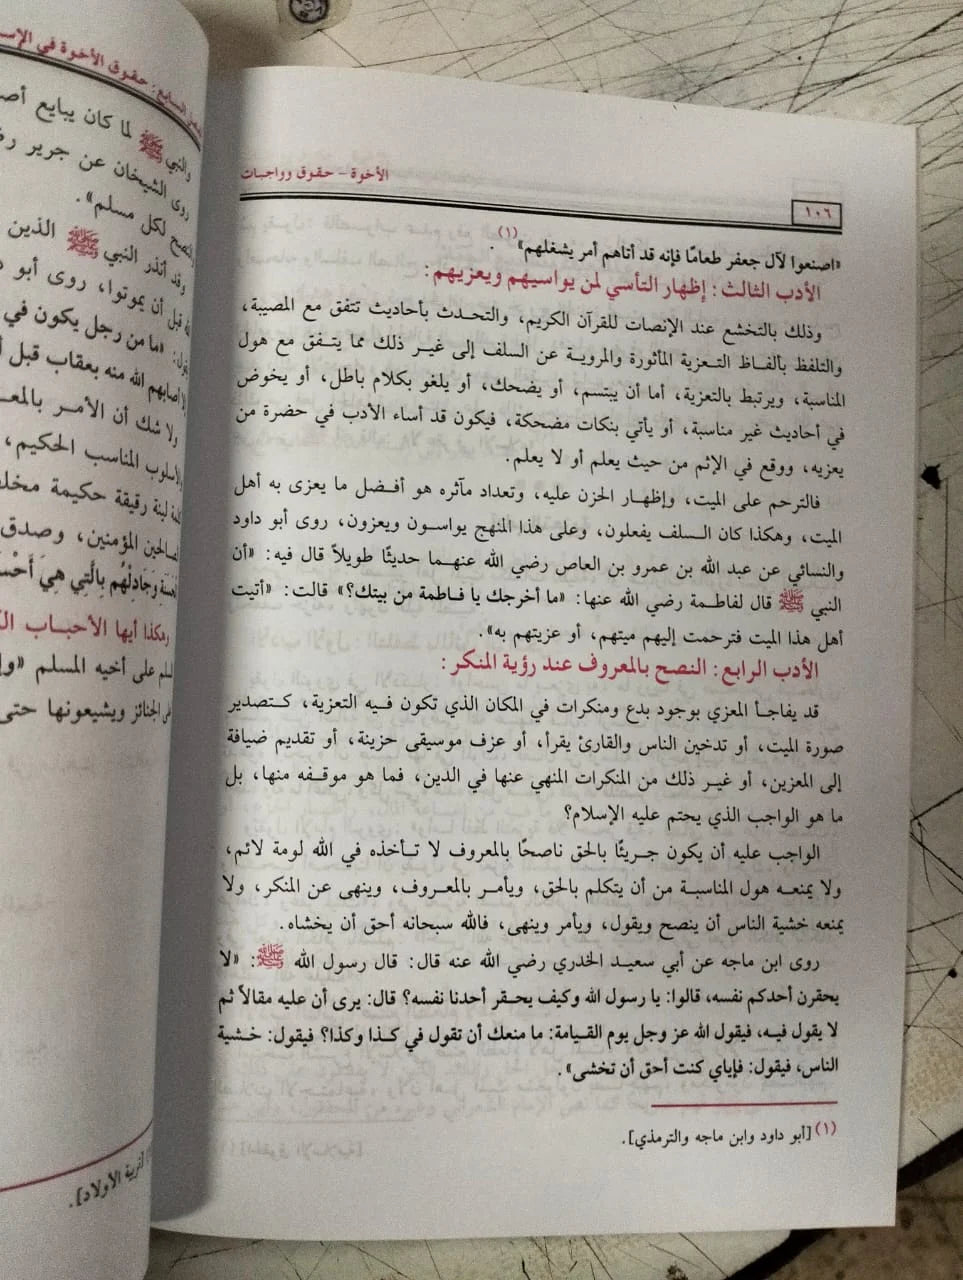 الأخوة - حقوق وواجبات
١٠٦
«اصنعوا لآل جعفر طعامًا فإنه قد أتاهم أمر يشغلهم» (١).
الأدب الثالث: إظهار التأسي لمن يواسيهم ويعزيهم:
وذلك بالتخشع عند الإنصات للقرآن الكريم، والتحدث بأحاديث تتفق مع المصيبة،
والتلفظ بألفاظ التعزية المأثورة والمروية عن السلف إلى غير ذلك مما يتفق مع هول
المناسبة، ويرتبط بالتعزية، أما أن يبتسم، أو يضحك، أو يلغو بكلام باطل، أو يخوض
في أحاديث غير مناسبة، أو يأتي بنكات مضحكة، فيكون قد أساء الأدب في حضرة من
يعزيه، ووقع في الإثم من حيث يعلم أو لا يعلم.
فالترحم على الميت، وإظهار الحزن عليه، وتعداد مآثره هو أفضل ما يعزى به أهل
الميت، وهكذا كان السلف يفعلون، وعلى هذا المنهج يواسون ويعزون، روى أبو داود
والنسائي عن عبد الله بن عمرو بن العاص رضي الله عنهما حديثًا طويلاً قال فيه: «أن
النبي ﷺ قال لفاطمة رضي الله عنها: «ما أخرجك يا فاطمة من بيتك؟» قالت: «أتيت
أهل هذا الميت فترحمت إليهم ميتهم، أو عزيتهم به».
الأدب الرابع: النصح بالمعروف عند رؤية المنكر:
قد يفاجأ المعزي بوجود بدع ومنكرات في المكان الذي تكون فيه التعزية، كتصدير
صورة الميت، أو تدخين الناس والقارئ يقرأ، أو عزف موسيقى حزينة، أو تقديم ضيافة
إلى المعزين، أو غير ذلك من المنكرات المنهي عنها في الدين، فما هو موقفه منها، بل
ما هو الواجب الذي يحتم عليه الإسلام؟
الواجب عليه أن يكون جريئًا بالحق ناصحًا بالمعروف لا تأخذه في الله لومة لائم،
ولا يمنعه هول المناسبة من أن يتكلم بالحق، ويأمر بالمعروف، وينهى عن المنكر، ولا
يمنعه خشية الناس أن ينصح ويقول، ويأمر وينهى، فالله سبحانه أحق أن يخشاه.
روى ابن ماجه عن أبي سعيد الخدري رضي الله عنه قال: قال رسول الله ﷺ: «لا
يحقرن أحدكم نفسه، قالوا: يا رسول الله وكيف يحقر أحدنا نفسه؟ قال: يرى أن عليه مقالاً ثم
لا يقول فيه، فيقول الله عز وجل يوم القيامة: ما منعك أن تقول في كذا وكذا؟ فيقول: خشية
الناس، فيقول: فإياي كنت أحق أن تخشى».
(١) [أبو داود وابن ماجه والترمذي].
حقوق الأخوة في
والنبي ﷺ لما كان يبايع
روى الشيخان عن جرير
والنصح لكل مسلم».
وقد أنذر النبي ﷺ الذين
قبل أن يموتوا، روى أبو
يقول: «ما من رجل يكون في
إلا أصابهم الله منه بعقاب قبل
ولا شك أن الأمر
والأسلوب المناسب الحكيم،
لينة رقيقة حكيمة
المؤمنين، وصدق
وَجَادِلْهُم بِالَّتِي هِيَ
وهكذا أيها الأحباب
على أخيه المسلم
الجنائز ويشيعونها حتى
الأولاد].